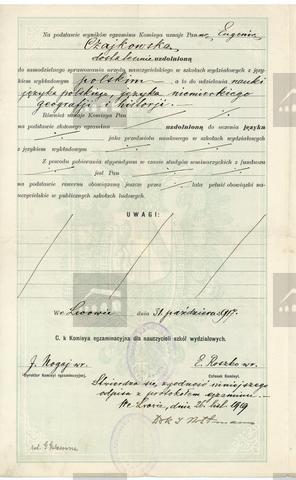 Na podstawie wyników egzaminu Komisya uznaje Pannę Eugenię
Czajkowską
dostatecznie uzdolnioną
do samodzielnego sprawowania urzędu nauczycielskiego w szkołach wydziałowych z ję-
zykiem wykładowym polskim — a to do udzielania nauki
języka polskiego, języka niemieckiego
geografji i historji. —
Również uznaje Komisya Pan
na podstawie złożonego egzaminu uzdolnioną do uczenia języka
jako przedmiotu naukowego w szkołach wydziałowych
z językiem wykładowym
Z powodu pobierania stypendyum w czasie studyów seminarzyckich z funduszu
jest Pan
na podstawie rewersu obowiązaną jeszcze przez lata pełnić obowiązki na-
uczycielskie w publicznych szkołach ludowych.
UWAGI:
We Lwowie dnia 31. października 1917.
C. k Komisya egzaminacyjna dla nauczycieli szkół wydziałowych.
J. Nogaj wr. E. Roszka wr.
Dyrektor Komisyi egzaminacyjnej. Członek Komisyi.
Stwierdza się zgodność niniejszego
odpisu z protokołem egzaminu. —
We Lwowie, dnia 26. 1919